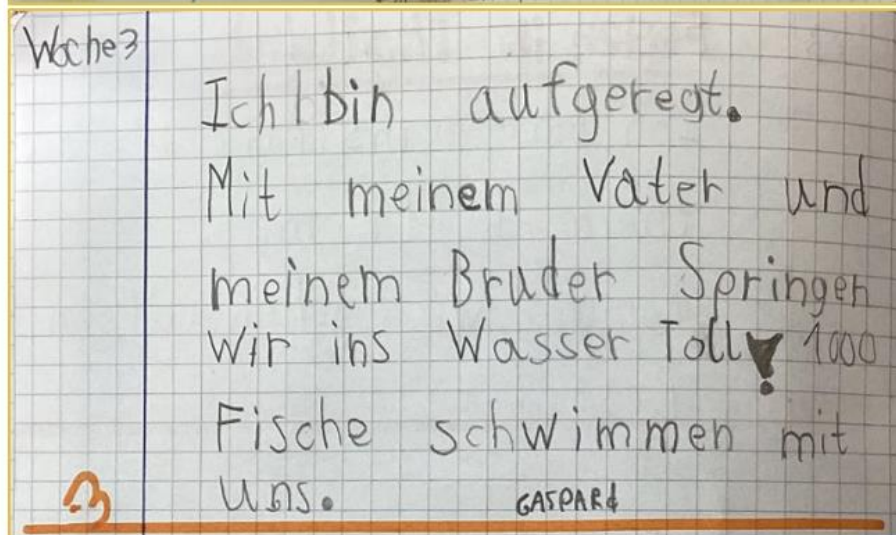 Woche 3
Ich bin aufgeregt.
Mit meinem Vater und
meinem Bruder Springen
Wir ins Wasser Toll! 1000
Fische schwimmen mit
uns.
GASPARd
3